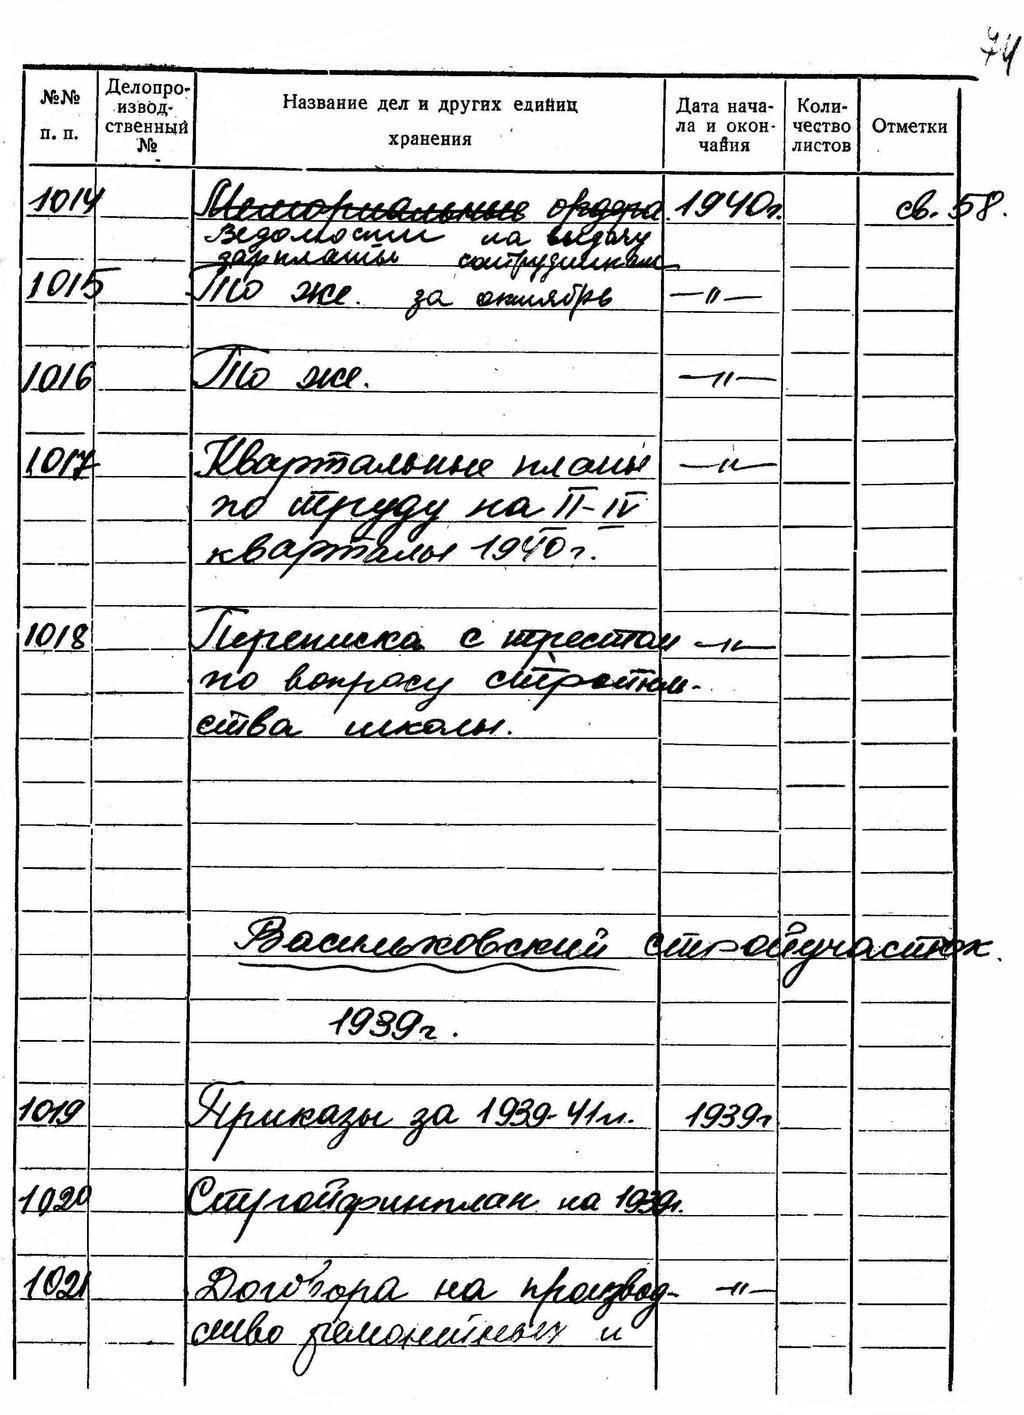 74
№№ п. п. Делопро-извод-ственный № Название дел и других единиц хранения Дата нача-ла и окон-чания Коли-чество листов Отметки
1014 Мемориальные ордера 1940г. св. 58.
Ведомости на выдачу
зарплаты сотрудникам
1015 То же. за октябрь —"—
1016 То же. —"—
1017 Квартальные планы —"—
по труду на II-IV
кварталы 1940г.
1018 Переписка с трестом —"—
по вопросу строитель-
ства школы.
Васильковский стройучасток.
1939г.
1019 Приказы за 1939-41гг. 1939г
1020 Стройфинплан на 1939г.
1021 Договора на производ- —"—
ство ремонтных и